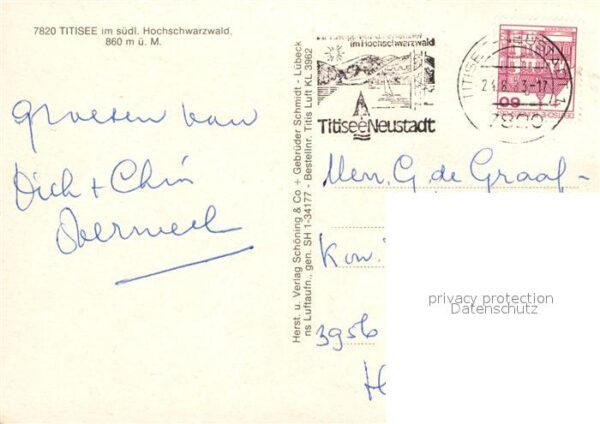 7820 TITISEE im südl. Hochschwarzwald.
860 m ü. M.
Groeten van
Dich + Chin
Herst. u. Verlag Schöning & Co + Gebrüder Schmidt - Lübeck
ns Luftaufn., gen. SH 1-34177 - Bestellnr. Titis Luft KL 3962
im Hochschwarzwald
Titisee Neustadt
TITISEE-
7820
Men. G. de Graaf-
Kon.
3956
H
privacy protection
Datenschutz